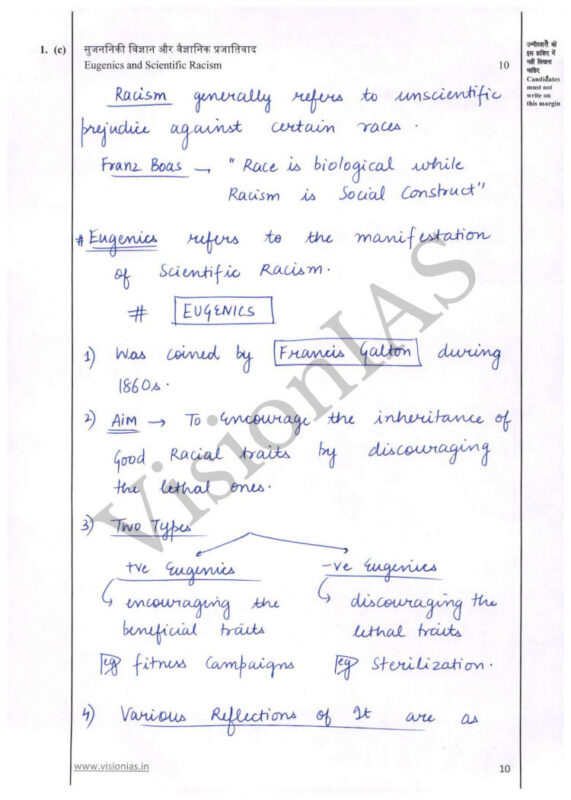 1. (c) सुजननिकी विज्ञान और वैज्ञानिक प्रजातिवाद
Eugenics and Scientific Racism 10
उम्मीदवारों को
इस हाशिए में
नहीं लिखना
चाहिए
Candidates
must not
write on
this margin
Racism generally refers to unscientific
prejudice against certain races.
Franz Boas → "Race is biological while
Racism is Social Construct"
# Eugenics refers to the manifestation
of Scientific Racism.
# EUGENICS
1) Was coined by Francis Galton during
1860s.
2) Aim → To Encourage the inheritance of
Good Racial traits by discouraging
the lethal ones.
3) Two Types
+ve Eugenics -ve Eugenics
↳ encouraging the ↳ discouraging the
beneficial traits lethal traits
eg fitness Campaigns eg Sterilization.
4) Various Reflections of It are as
VisionIAS
www.visionias.in 10